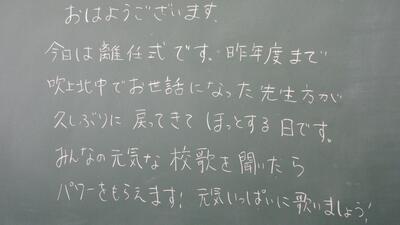 おはようございます。
今日は離任式です。昨年度まで
吹上北中でお世話になった先生方が
久しぶりに戻ってきてほっとする日です。
みんなの元気な校歌を聞いたら
パワーをもらえます！元気いっぱいに歌いましょう！